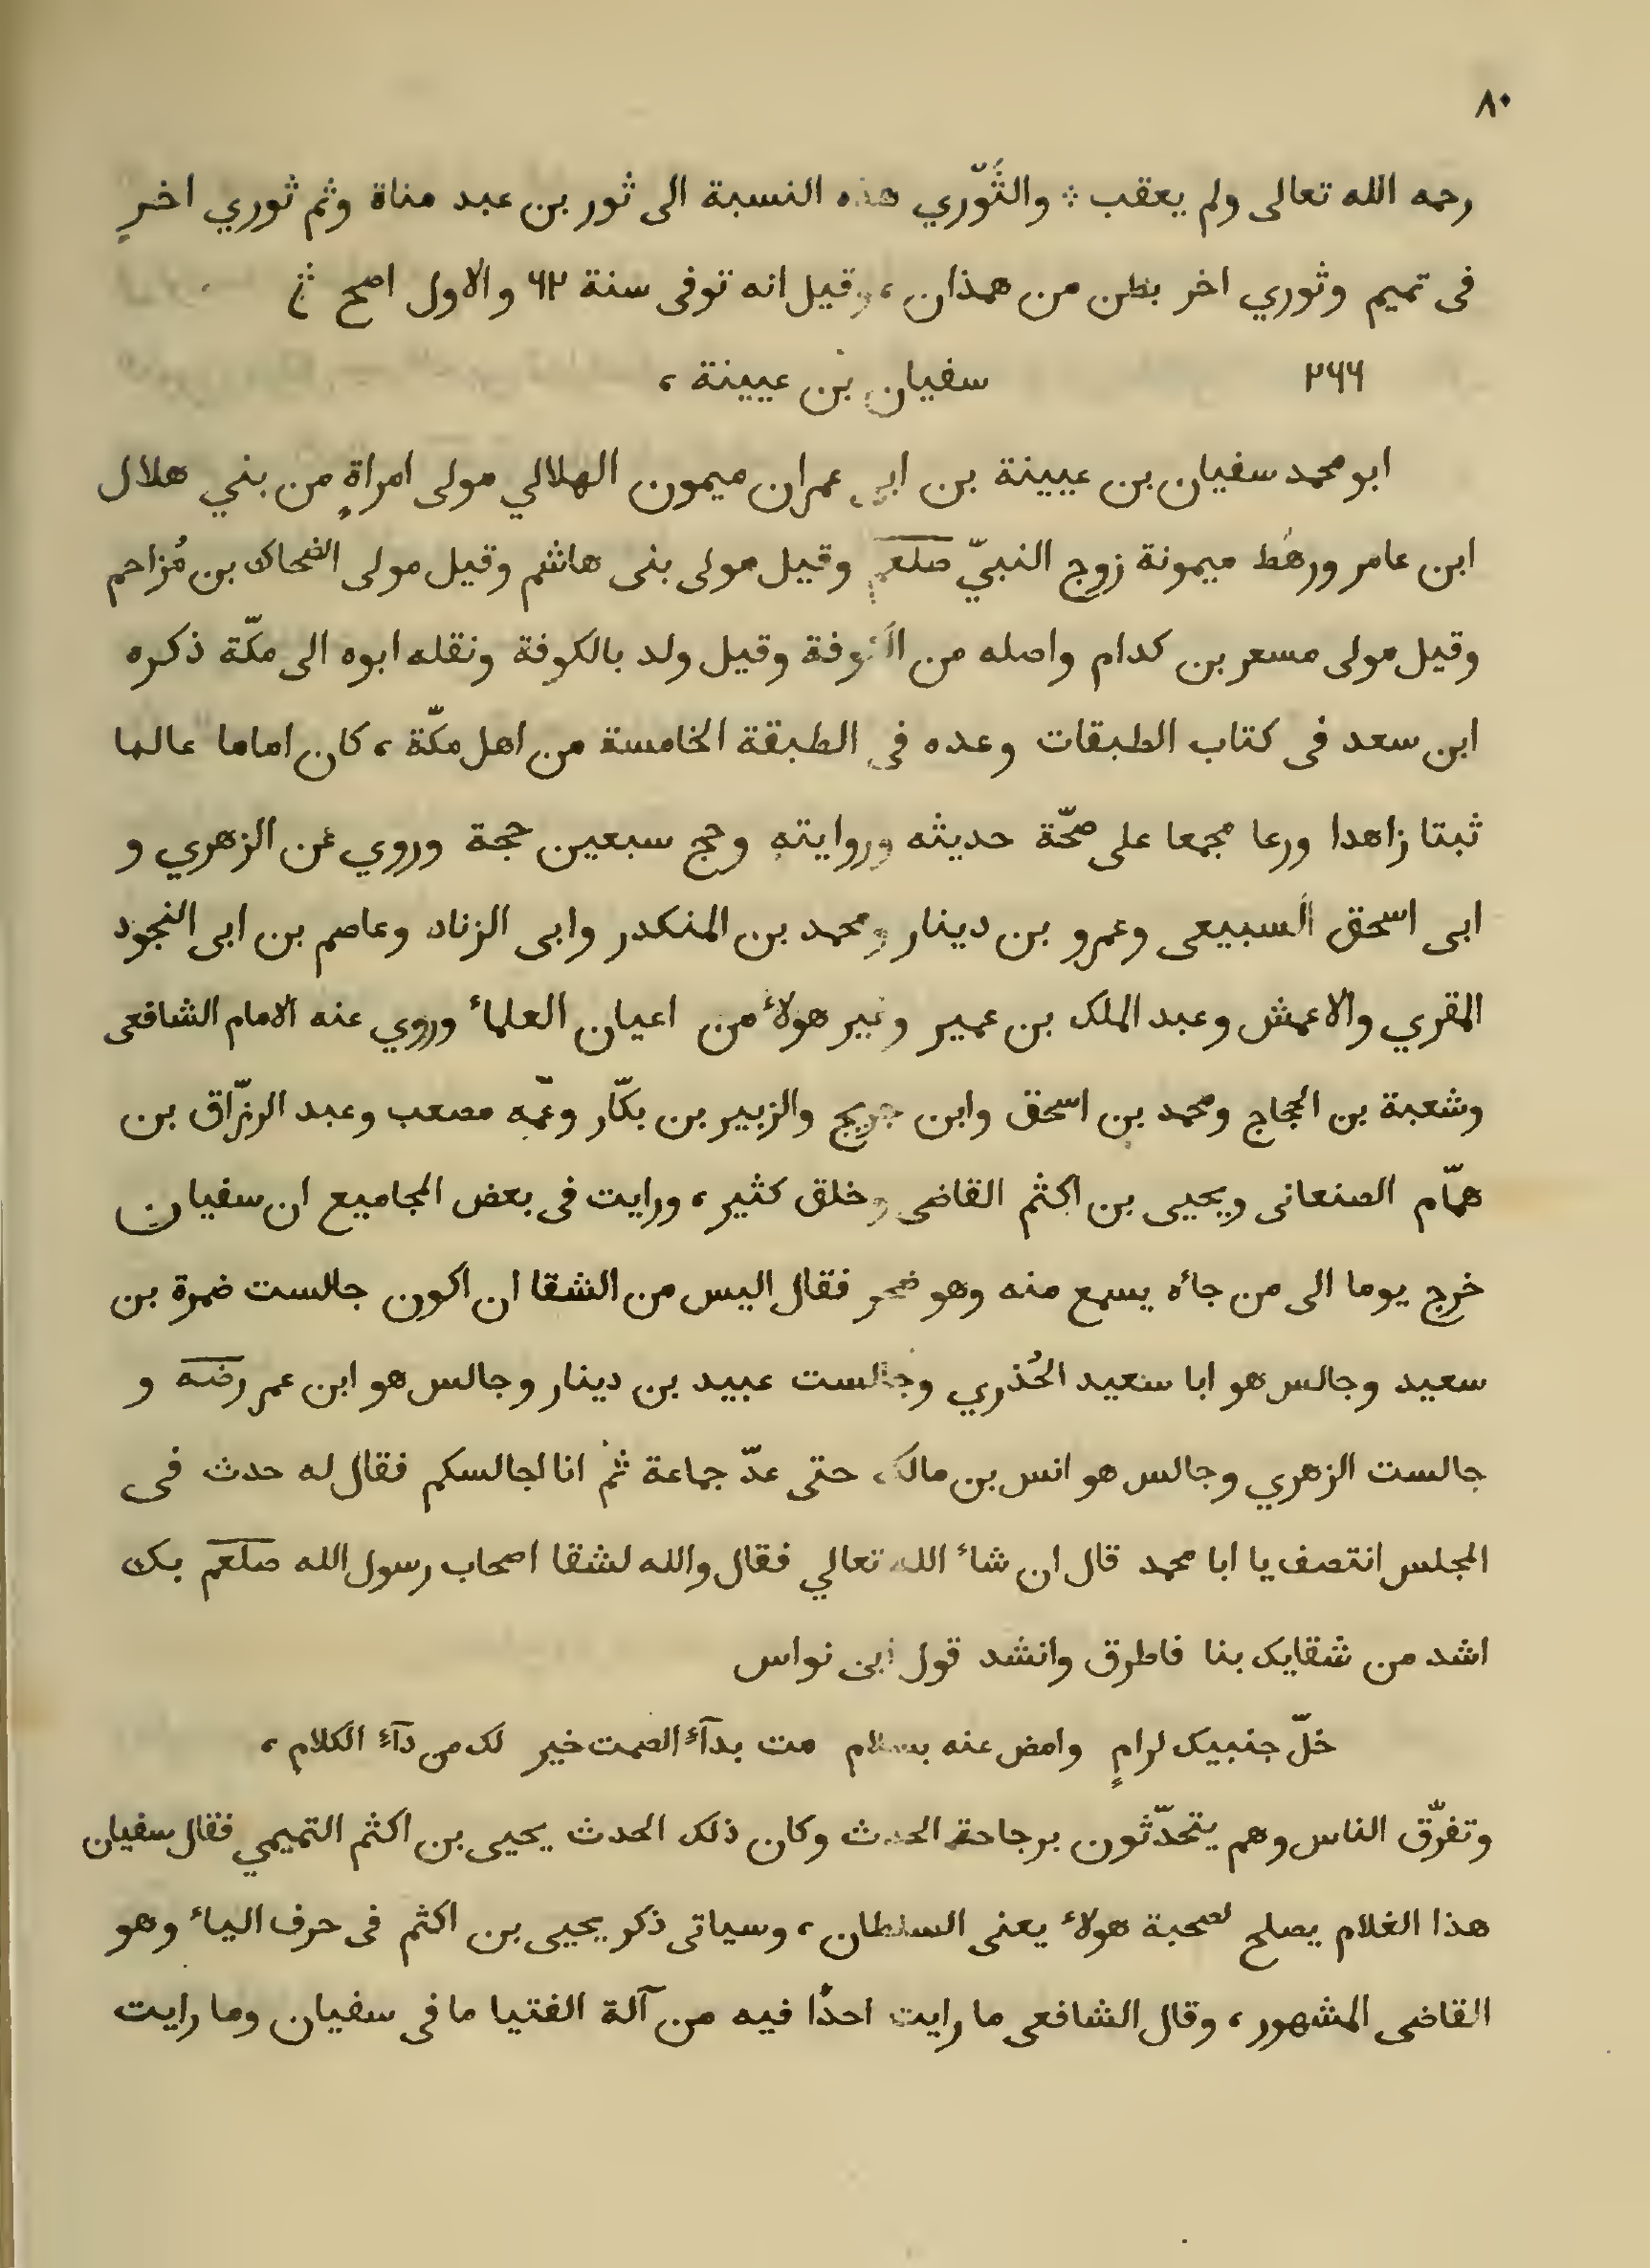 ٨٠
رحمه الله تعالى ولم يعقب ۞ والثَّوّري هذه النسبة الى ثور بن عبد مناة وثم ثوري اخر
فى تميم وثوري اخر بطن من همذان ، وقيل انه توفى سنة ٦٢ والاول اصح
٢٦٦ سفيان بن عيينة ،
ابو محمد سفيان بن عيينة بن ابي عمران ميمون الهلالي مولى امراةٍ من بني هلال
ابن عامر ورهط ميمونة زوج النبيّ صلعم وقيل مولى بنى هاشم وقيل مولى الضحاك بن مُزاحم
وقيل مولى مسعر بن كدام واصله من الكوفة وقيل ولد بالكوفة ونقله ابوه الى مكّة ذكره
ابن سعد فى كتاب الطبقات وعده في الطبقة الخامسة من اهل مكّة ، كان اماما عالما
ثبتا زاهدا ورعا مجمعا على صحّة حديثه وروايته وحج سبعين حجة وروي عن الزهري و
ابى اسحق السبيعى وعمرو بن دينار ومحمد بن المنكدر وابى الزناد وعاصم بن ابى النجود
المقري والاعمش وعبد الملك بن عمير وغير هولاء من اعيان العلماء وروي عنه الامام الشافعى
وشعبة بن الحجاج ومحمد بن اسحق وابن جريج والزبير بن بكّار وعمّه مصعب وعبد الرزّاق بن
همّام الصنعانى ويحيى بن اكثم القاضى وخلق كثير ، ورايت فى بعض المجاميع ان سفيان
خرج يوما الى من جاءه يسمع منه وهو ضجر فقال اليس من الشقا ان اكون جالست ضمرة بن
سعيد وجالس هو ابا سعيد الخُذري وجالست عبيد بن دينار وجالس هو ابن عمر رضه و
جالست الزهري وجالس هو انس بن مالك حتى عدّ جماعة ثم انا اجالسكم فقال له حدث فى
المجلس انتصف يا ابا محمد قال ان شاء الله تعالي فقال والله لشقا اصحاب رسول الله صلعم بك
اشد من شقايك بنا فاطرق وانشد قول ابى نواس
خلّ جنبيك لرامٍ وامض عنه بسلام مت بدآء الصمت خير لك من دآء الكلام ،
وتفرّق الناس وهم يتحدّثون برجاحة الحدث وكان ذلك الحدث يحيى بن اكثم التميمي فقال سفيان
هذا الغلام يصلح لصحبة هولاء يعنى السلطان ، وسياتى ذكر يحيى بن اكثم فى حرف الياء وهو
القاضى المشهور ، وقال الشافعى ما رايت احدًا فيه من آلة الفتيا ما فى سفيان وما رايت